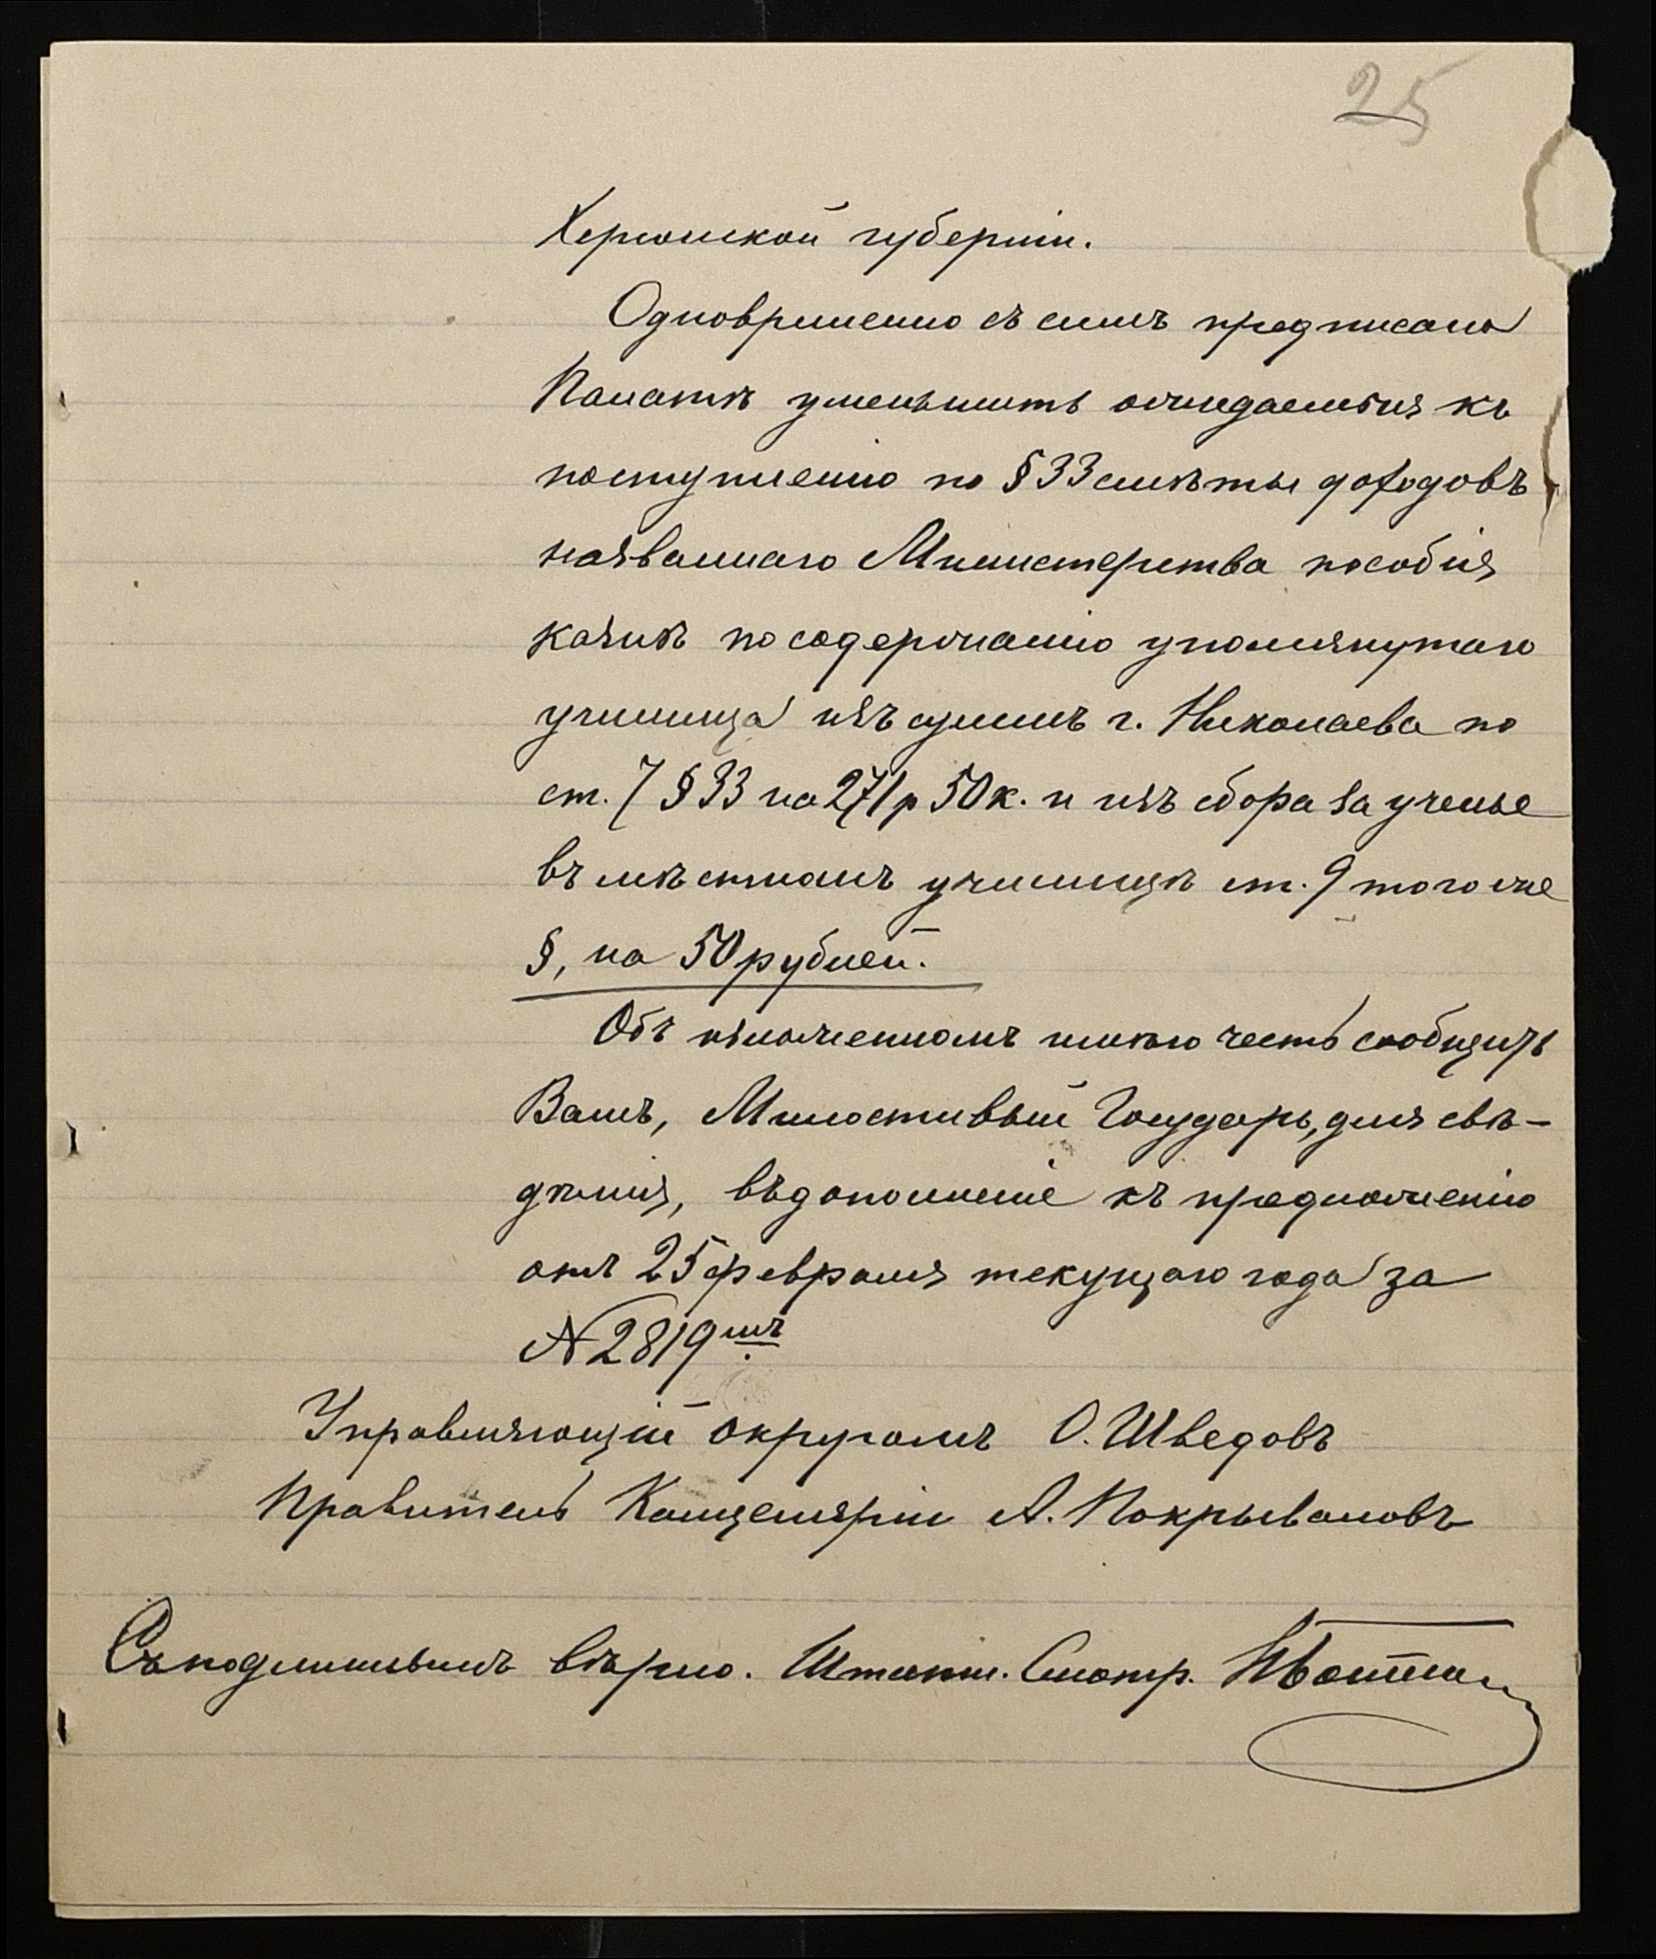 25
Херсонской губерніи.
Одновременно съ симъ предписано
Палатѣ уменьшить ожидаемыя къ
поступленію по § 33 смѣты доходовъ
названнаго Министерства пособія
казнѣ по содержанію упомянутаго
училища изъ суммъ г. Николаева по
ст. 7 § 33 на 271 р 50 к. и изъ сбора за ученье
въ мѣстномъ училищѣ ст. 9 того же
§, на 50 рублей.
Объ изложенномъ имѣю честь сообщить
Вамъ, Милостивый Государь, для свѣ-
дѣнія, въ дополненіе къ предложенію
отъ 25 февраля текущаго года за
№ 2819мъ.
Управляющій округомъ О. Шведовъ
Правитель Канцеляріи А. Покрываловъ
Съ подлиннымъ вѣрно. Штатн. Смотр.